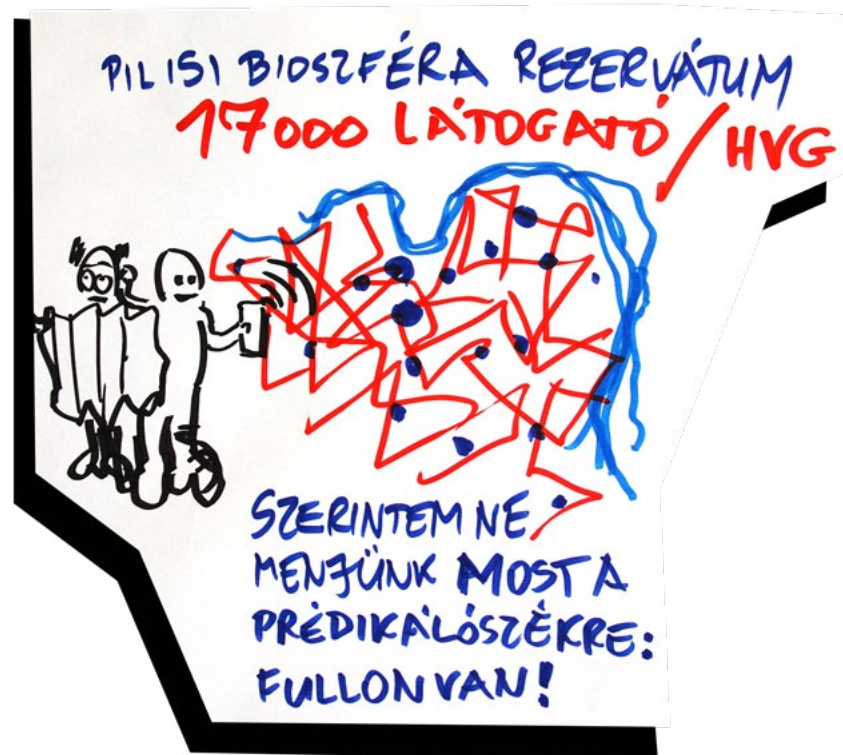 PILISI BIOSZFÉRA REZERVÁTUM
17000 LÁTOGATÓ/HVG
SZERINTEM NE
MENJÜNK MOST A
PRÉDIKÁLÓSZÉKRE:
FULLON VAN!